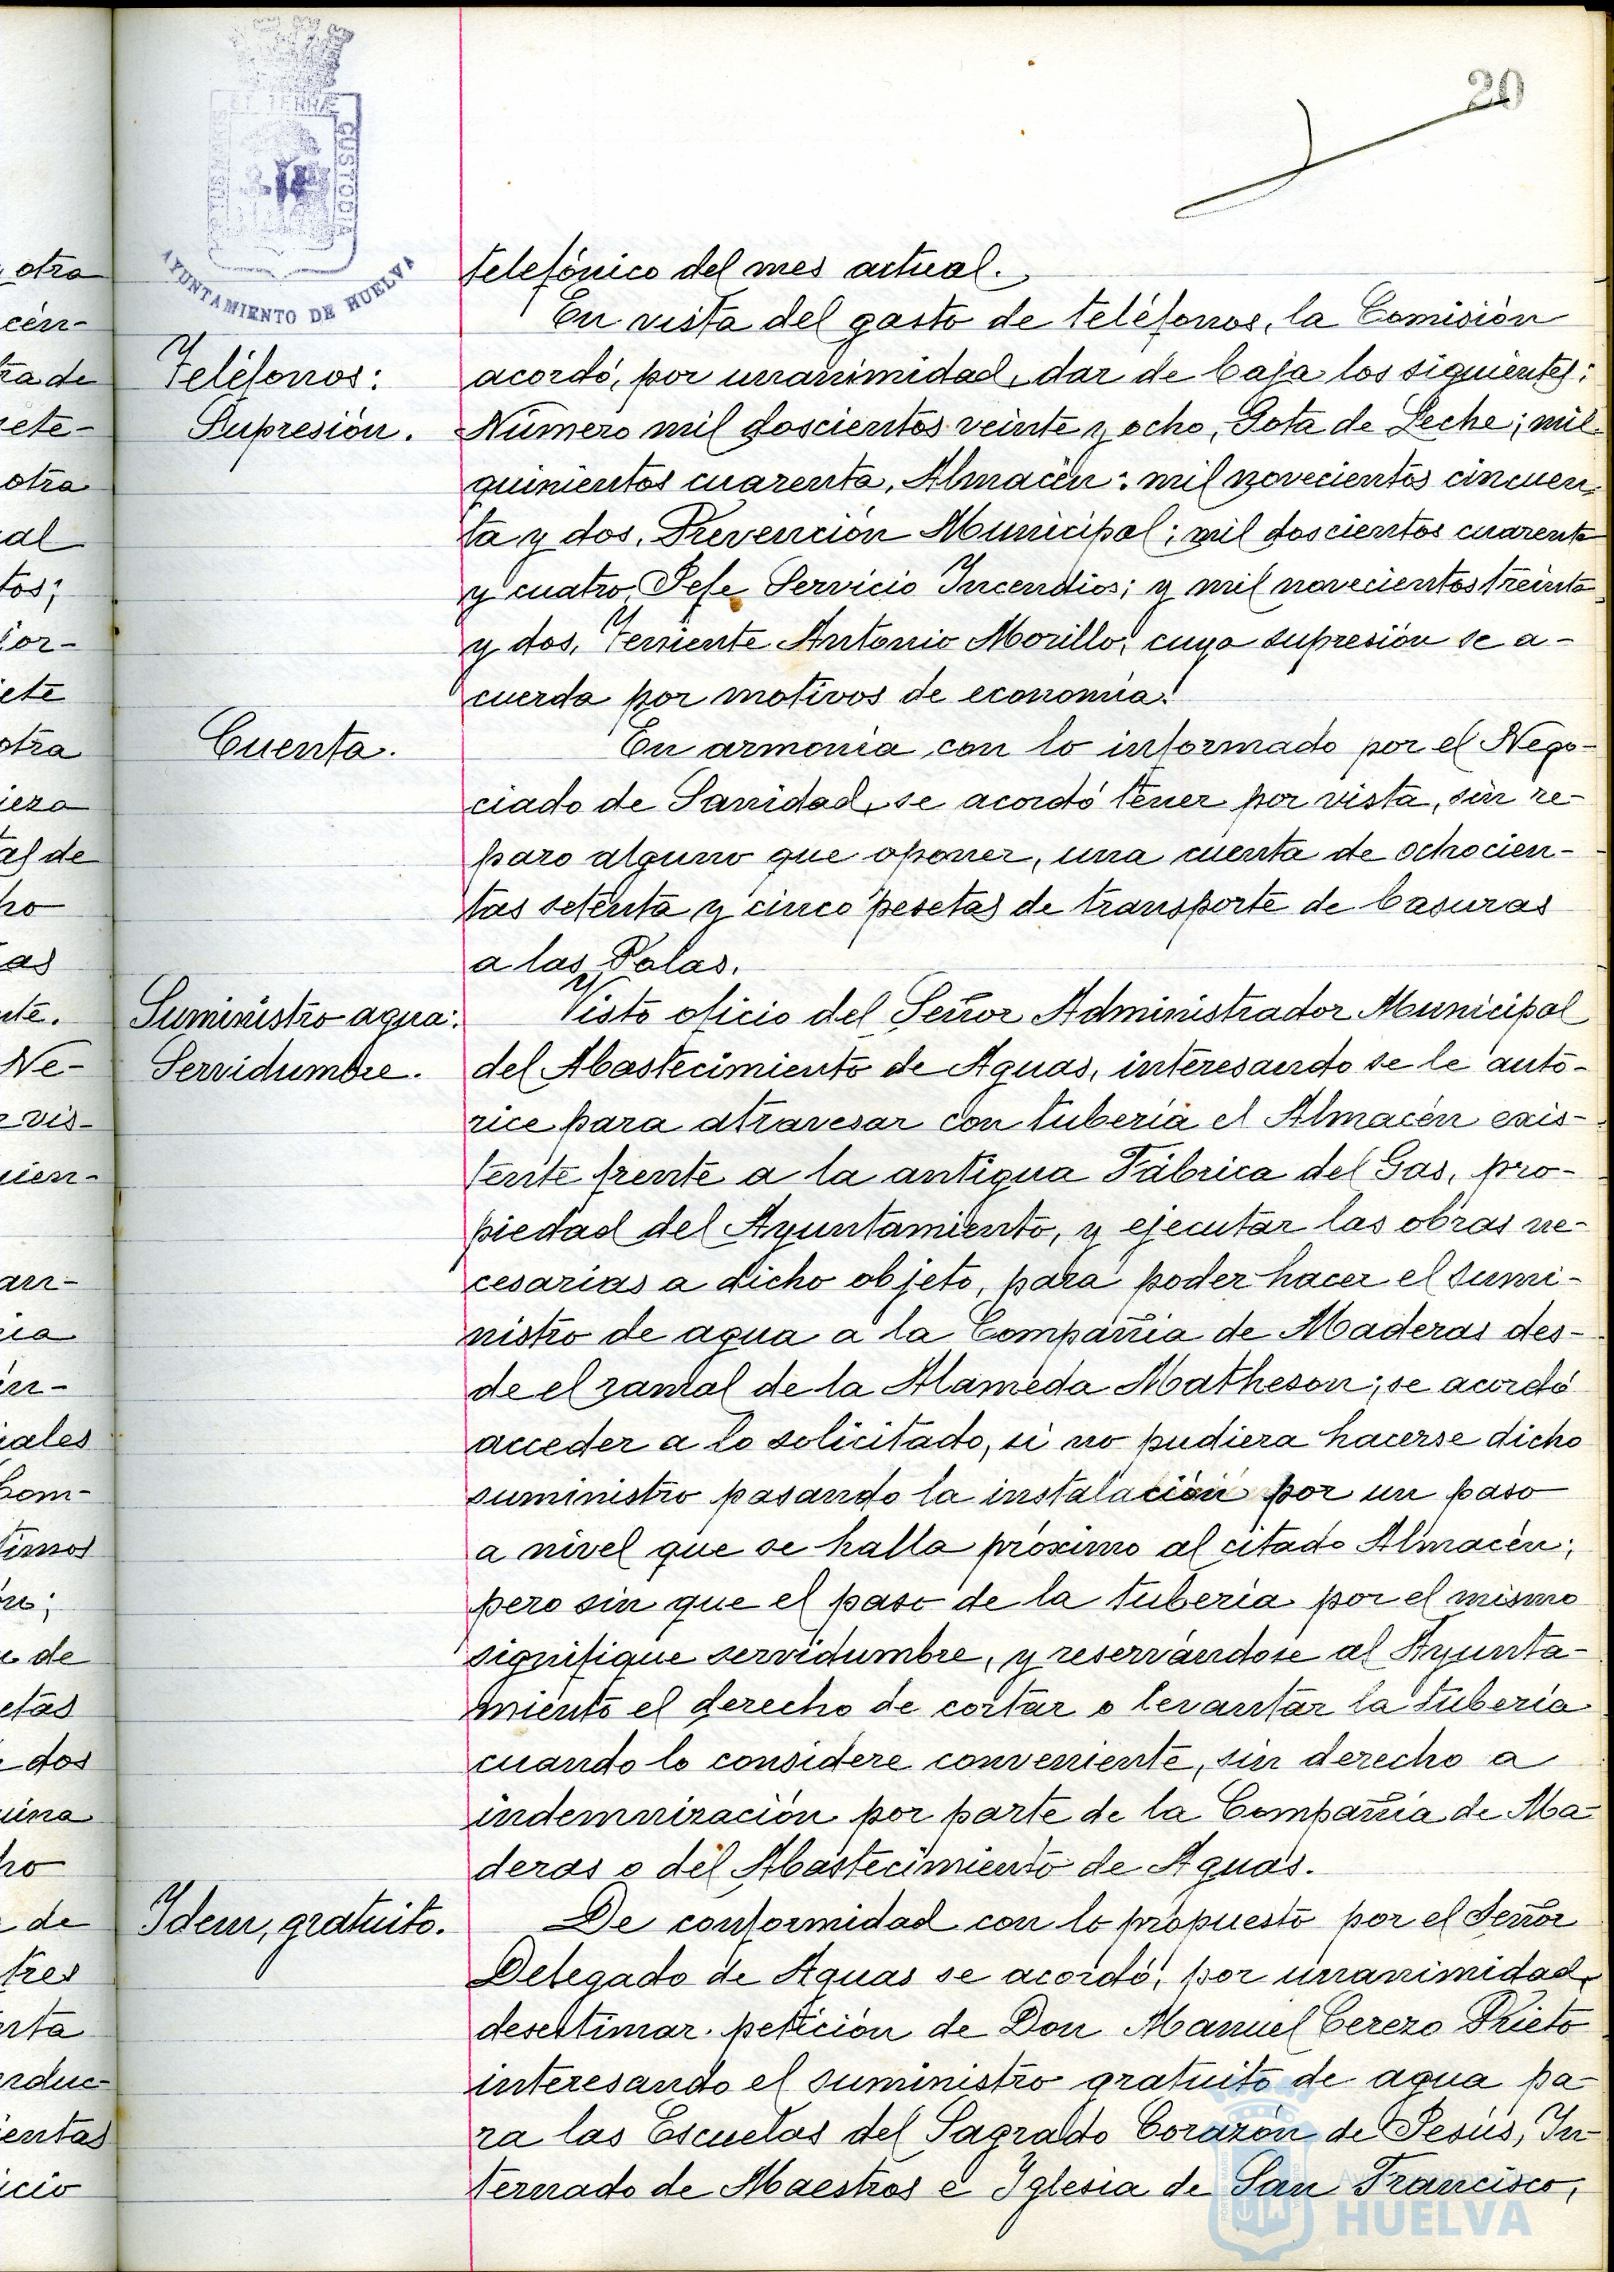 20
ET TERRÆ
CUSTODIA
AYUNTAMIENTO DE HUELVA
telefónico del mes actual.
En vista del gasto de teléfonos, la Comisión
Teléfonos:
acordó, por unanimidad, dar de baja los siguientes:
Supresión.
Número mil doscientos veinte y ocho, Gota de Leche; mil
quinientos cuarenta, Almacén; mil novecientos cincuen-
ta y dos, Prevención Municipal; mil doscientos cuarenta
y cuatro, Jefe Servicio Incendios; y mil novecientos treinta
y dos, Teniente Antonio Morillo, cuya supresión se a-
cuerda por motivos de economía.
Cuenta.
En armonía con lo informado por el Nego-
ciado de Sanidad, se acordó tener por vista, sin re-
paro alguno que oponer, una cuenta de ochocien-
tas setenta y cinco pesetas de transporte de basuras
a las Polas.
Suministro agua:
Visto oficio del Señor Administrador Municipal
Servidumbre.
del Abastecimiento de Aguas, interesando se le auto-
rice para atravesar con tubería el Almacén exis-
tente frente a la antigua Fábrica del Gas, pro-
piedad del Ayuntamiento, y ejecutar las obras ne-
cesarias a dicho objeto, para poder hacer el sumi-
nistro de agua a la Compañía de Maderas des-
de el ramal de la Alameda Matheson; se acordó
acceder a lo solicitado, si no pudiera hacerse dicho
suministro pasando la instalación por un paso
a nivel que se halla próximo al citado Almacén;
pero sin que el paso de la tubería por el mismo
signifique servidumbre, y reservándose al Ayunta-
miento el derecho de cortar o levantar la tubería
cuando lo considere conveniente, sin derecho a
indemnización por parte de la Compañía de Ma-
deras o del Abastecimiento de Aguas.
Idem, gratuito.
De conformidad con lo propuesto por el Señor
Delegado de Aguas se acordó, por unanimidad,
desestimar petición de Don Manuel Cerezo Prieto
interesando el suministro gratuito de agua pa-
ra las Escuelas del Sagrado Corazón de Jesús, In-
ternado de Maestros e Iglesia de San Francisco,
HUELVA